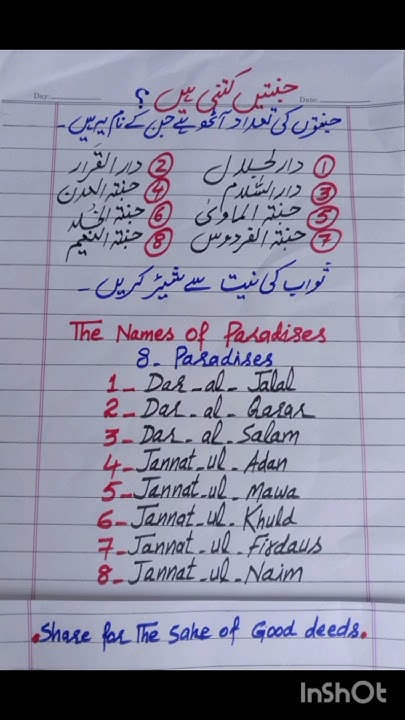 جنتیں کتنی ہیں؟
Day: Date:
جنتوں کی تعداد آٹھ ہے جن کے نام یہ ہیں۔
① دار الجلال ② دار القرار
③ دار السّلام ④ جنتہ العدن
⑤ جنتہ الماویٰ ⑥ جنتہ الخُلد
⑦ جنتہ الفردوس ⑧ جنتہ النعیم
ثواب کی نیت سے شیئر کریں۔
The Names of Paradises
8. Paradises
1- Dar-al-Jalal
2- Dar-al-Qarar
3- Dar-al-Salam
4- Jannat-ul-Adan
5- Jannat-ul-Mawa
6- Jannat-ul-Khuld
7- Jannat-ul-Firdaus
8- Jannat-ul-Naim
.Share for The Sake of Good deeds.
InShOt